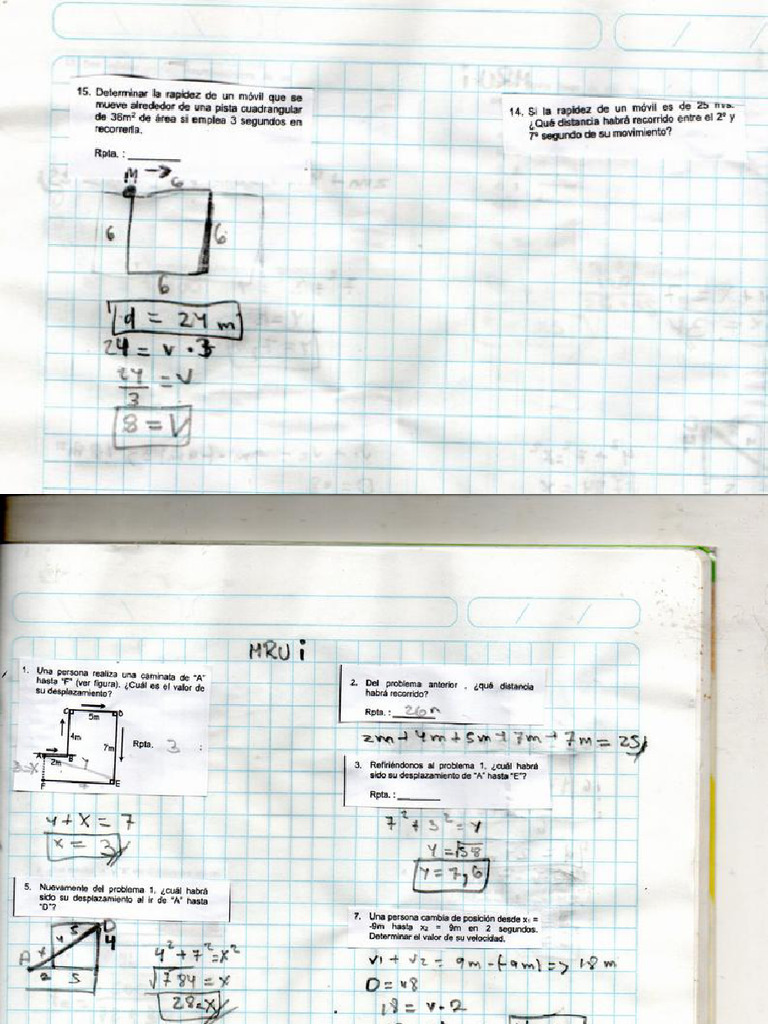 15. Determinar la rapidez de un móvil que se
mueve alrededor de una pista cuadrangular
de 36m² de área si emplea 3 segundos en
recorrerla.
Rpta. :
M → 6
6 6
6
d = 24 m
24 = v • 3
24/3 = V
8 = V
14. Si la rapidez de un móvil es de 25 m/s.
¿Qué distancia habrá recorrido entre el 2º y
7º segundo de su movimiento?
MRU i
1. Una persona realiza una caminata de "A"
hasta "F" (ver figura). ¿Cuál es el valor de
su desplazamiento?
C 5m D
4m
7m
A B
2m y
3=x
7
F E
Rpta. 3
4 + x = 7
x = 3
2. Del problema anterior , ¿qué distancia
habrá recorrido?
Rpta. : 26 m
2m + 4m + 5m + 7m + 7m = 25
3. Refiriéndonos al problema 1, ¿cuál habrá
sido su desplazamiento de "A" hasta "E"?
Rpta. :
7² + 3² = y
y = √58
y = 7,6
5. Nuevamente del problema 1, ¿cuál habrá
sido su desplazamiento al ir de "A" hasta
"D"?
5 D
x 4 4
A
2 5
4² + 7² = x²
√784 = x
28 = x
7. Una persona cambia de posición desde x₁ =
-9m hasta x₂ = 9m en 2 segundos.
Determinar el valor de su velocidad.
v1 + v2 = 9m - (-9m) => 18 m
D = 18
18 = v • 2